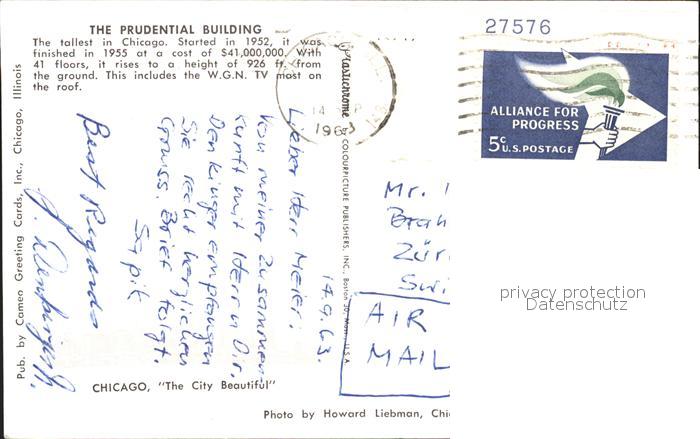 THE PRUDENTIAL BUILDING
The tallest in Chicago. Started in 1952, it was
finished in 1955 at a cost of $41,000,000. With
41 floors, it rises to a height of 926 ft. from
the ground. This includes the W.G.N. TV mast on
the roof.
Pub. by Cameo Greeting Cards, Inc., Chicago, Illinois
Plastichrome ® by COLOURPICTURE PUBLISHERS, INC., Boston 30, Mass., U.S.A.
27576
14
1963
ALLIANCE FOR
PROGRESS
5c U.S. POSTAGE
14.9.63.
Lieber Herr Meier.
Von meiner Zusammen-
kunft mit Herrn Dir.
Denkinger empfangen
Sie recht herzlichen
Gruss. Brief folgt.
Best Regards
Mr.
Zür
Swi
AIR
MAIL
privacy protection
Datenschutz
CHICAGO, "The City Beautiful"
Photo by Howard Liebman, Chi